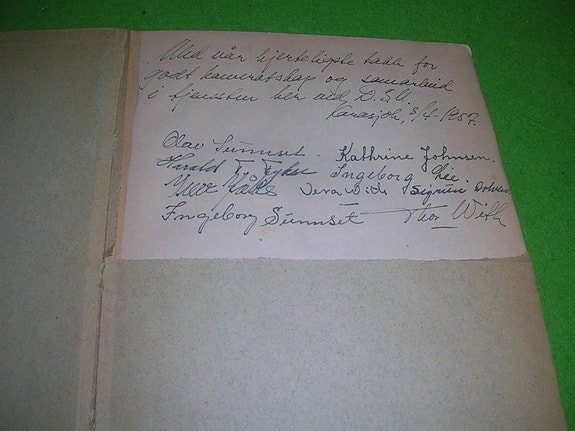 Med vår hjerteligste takk for
godt kameratskap og samarbeid
i tjenesten her ved D.S.U.
Karasjok, 8/4-1957.
Olav Sunnset. Kathrine Johnsen.
Harald Tykse Ingeborg Lie.
Vera With Sigrun
Ingeborg Sunnset Thor With